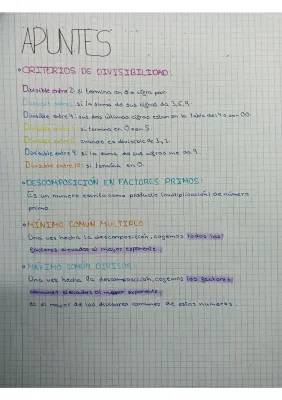 APUNTES
• CRITERIOS DE DIVISIBILIDAD:
Divisible entre 2: si termina en 0 o cifra par.
Divisible entre 3: si la suma de sus cifras da 3,6,9.
Divisible entre 4: sus dos últimas cifras estan en la tabla del 4 o son 00.
Divisible entre 5: si termina en 0 o en 5.
Divisible entre 6: cuando es divisible de 3 y 2.
Divisible entre 9: si la suma de sus cifras me da 9.
Divisible entre 10: si termina en 0
• DESCOMPOSICIÓN EN FACTORES PRIMOS:
Es un numero escrito como producto (multiplicación) de número
primo.
• MÍNIMO COMÚN MÚLTIPLO
Una vez hecha la descomposición, cogemos todos los
factores elevados al mayor exponente.
• MÁXIMO COMÚN DIVISOR:
Una vez hecha la descomposición, cogemos los factores
comunes elevados al menor exponente.
es el mayor de los divisores comunes de estos numeros.